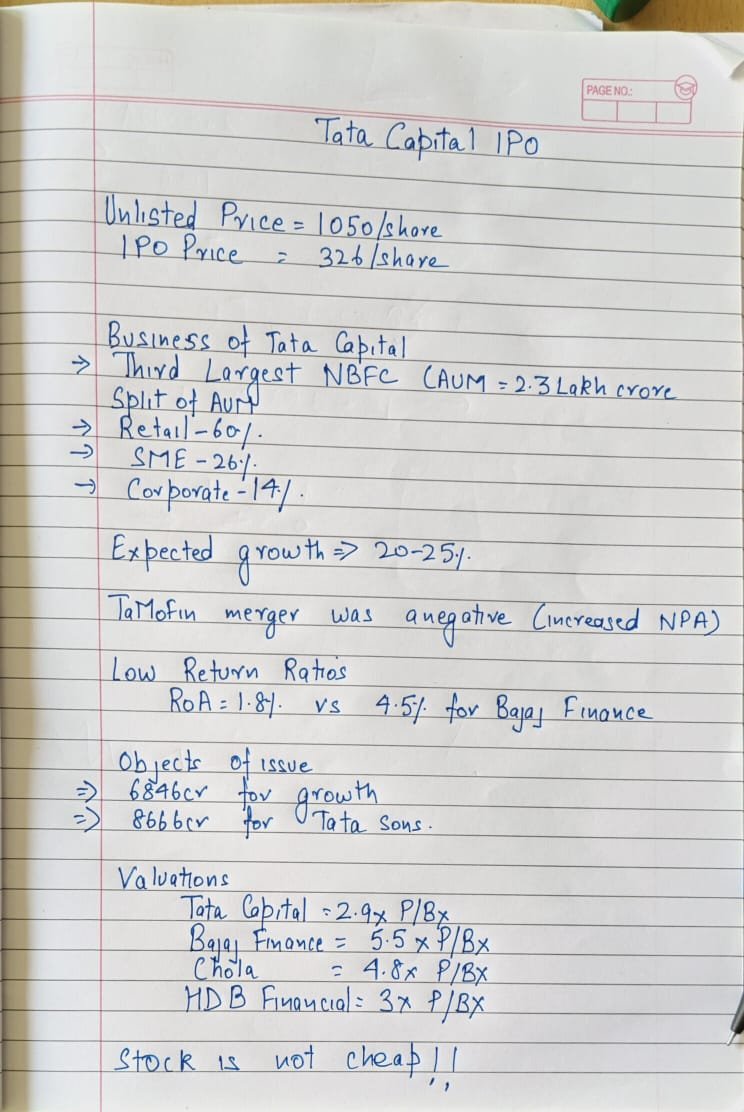 PAGE NO.:
Tata Capital IPO
Unlisted Price = 1050/share
IPO Price = 326/share
Business of Tata Capital
→ Third Largest NBFC (AUM = 2.3 Lakh crore
Split of AUM
→ Retail - 60%.
→ SME - 26%.
→ Corporate - 14%.
Expected growth ⇒ 20-25%.
TaMoFin merger was a negative (increased NPA)
Low Return Ratios
RoA = 1.8%. vs 4.5%. for Bajaj Finance
Objects of issue
⇒ 6846cr for growth
⇒ 8666cr for Tata Sons.
Valuations
Tata Capital = 2.9x P/Bx
Bajaj Finance = 5.5x P/Bx
Chola = 4.8x P/BX
HDB Financial = 3x P/BX
Stock is not cheap!!